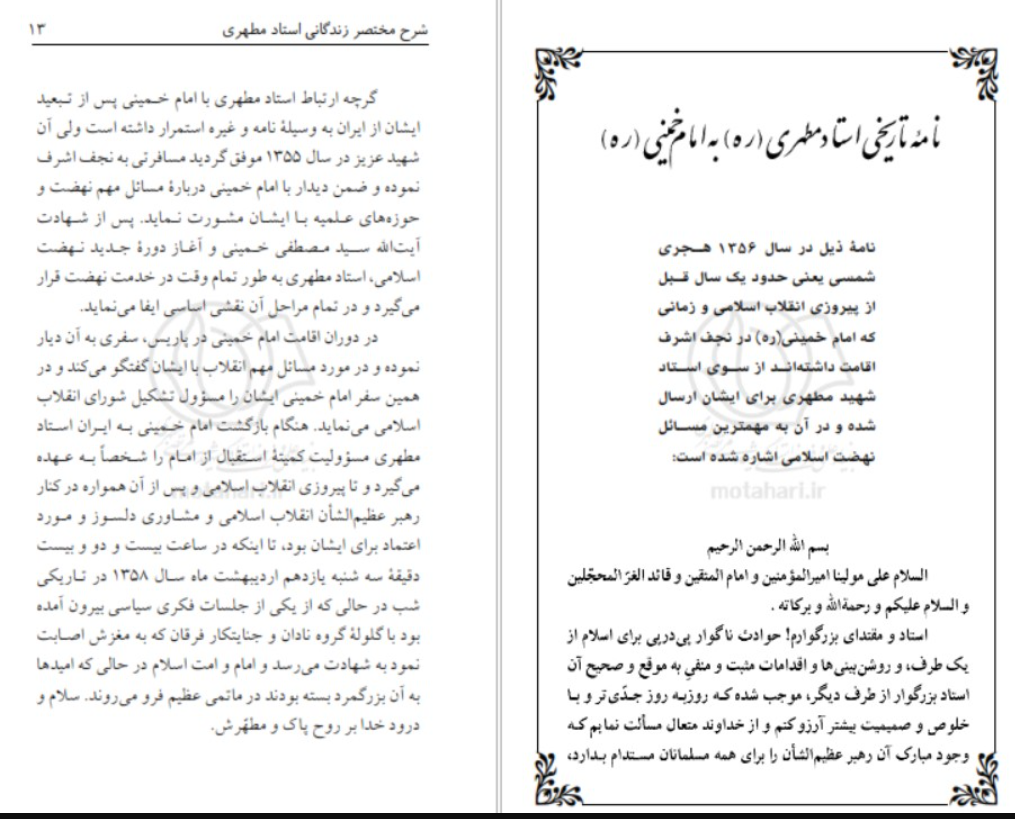 شرح مختصر زندگانی استاد مطهری ۱۳
گرچه ارتباط استاد مطهری با امام خـمینی پس از تـبعید
ایشان از ایران به وسیلهٔ نامه و غیره استمرار داشته است ولی آن
شهید عزیز در سال ۱۳۵۵ موفق گردید مسافرتی به نجف اشرف
نموده و ضمن دیدار با امام خمینی دربارهٔ مسائل مهم نهضت و
حوزه‌های عـلمیه بـا ایشـان مشـورت نـماید. پس از شـهادت
آیت‌الله سـید مـصطفی خـمینی و آغـاز دورهٔ جـدید نـهضت
اسلامی، استاد مطهری به طور تمام وقت در خدمت نهضت قرار
می‌گیرد و در تمام مراحل آن نقشی اساسی ایفا می‌نماید.
در دوران اقامت امام خمینی در پاریس، سفری به آن دیار
نموده و در مورد مسائل مهم انقلاب با ایشان گفتگو می‌کند و در
همین سفر امام خمینی ایشان را مسؤول تشکیل شورای انقلاب
اسلامی می‌نماید. هنگام بازگشت امام خـمینی بـه ایـران اسـتاد
مطهری مسؤولیت کمیتهٔ اسـتقبال از امـام را شـخصاً بـه عـهده
می‌گیرد و تا پیروزی انقلاب اسلامی و پس از آن همواره در کنار
رهبر عظیم‌الشأن انقلاب اسلامی و مشـاوری دلسـوز و مـورد
اعتماد برای ایشان بود، تا اینکه در ساعت بیست و دو و بیست
دقیقهٔ سه شنبه یازدهم اردیبهشت ماه سـال ۱۳۵۸ در تـاریکی
شب در حالی که از یکی از جلسات فکری سیاسی بیرون آمده
بود با گلولهٔ گروه نادان و جنایتکار فرقان که به مغزش اصـابت
نمود به شهادت می‌رسد و امام و امت اسلام در حالی که امیدها
به آن بزرگمرد بسته بودند در ماتمی عظیم فرو می‌روند. سلام و
درود خدا بر روح پاک و مطهّرش.
motahari.ir
نامهٔ تاریخی استاد مطهری (ره) به امام خمینی (ره)
نامهٔ ذیل در سال ۱۳۵۶ هـجری
شمسی یعنی حدود یک سال قـبل
از پیروزی انقلاب اسلامی و زمانی
که امام خمینی(ره) در نجف اشرف
اقامت داشته‌انـد از سـوی اسـتاد
شهید مطهری برای ایشان ارسال
شده و در آن به مهمترین مسـائل
نهضت اسلامی اشاره شده است:
motahari.ir
بسم الله الرحمن الرحیم
السلام علی مولینا امیرالمؤمنین و امام المتقین و قائد الغرّ المحجّلین
و السلام علیکم و رحمةالله و برکاته .
استاد و مقتدای بزرگوارم! حوادث ناگوار پی‌درپی برای اسلام از
یک طرف، و روشن‌بینی‌ها و اقدامات مثبت و منفیِ به موقع و صحیح آن
استاد بزرگوار از طرف دیگر، موجب شده کـه روزبـه روز جـدّی‌تر و بـا
خلوص و صمیمیت بیشتر آرزو کنم و از خداوند متعال مسألت نمایم کـه
وجود مبارک آن رهبر عظیم‌الشأن را برای همه مسلمانان مسـتدام بـدارد،